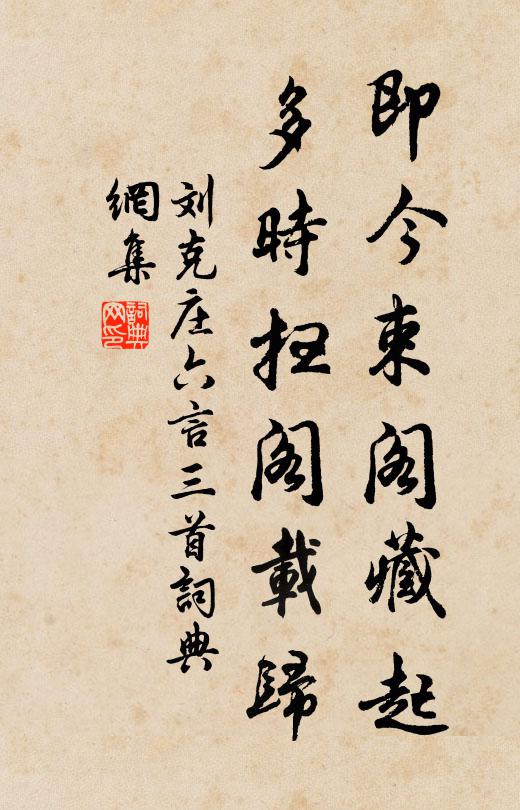 即今束阁藏起
多時抂阁載歸
刘克庄六言三首詞典
網集
詞典
网印